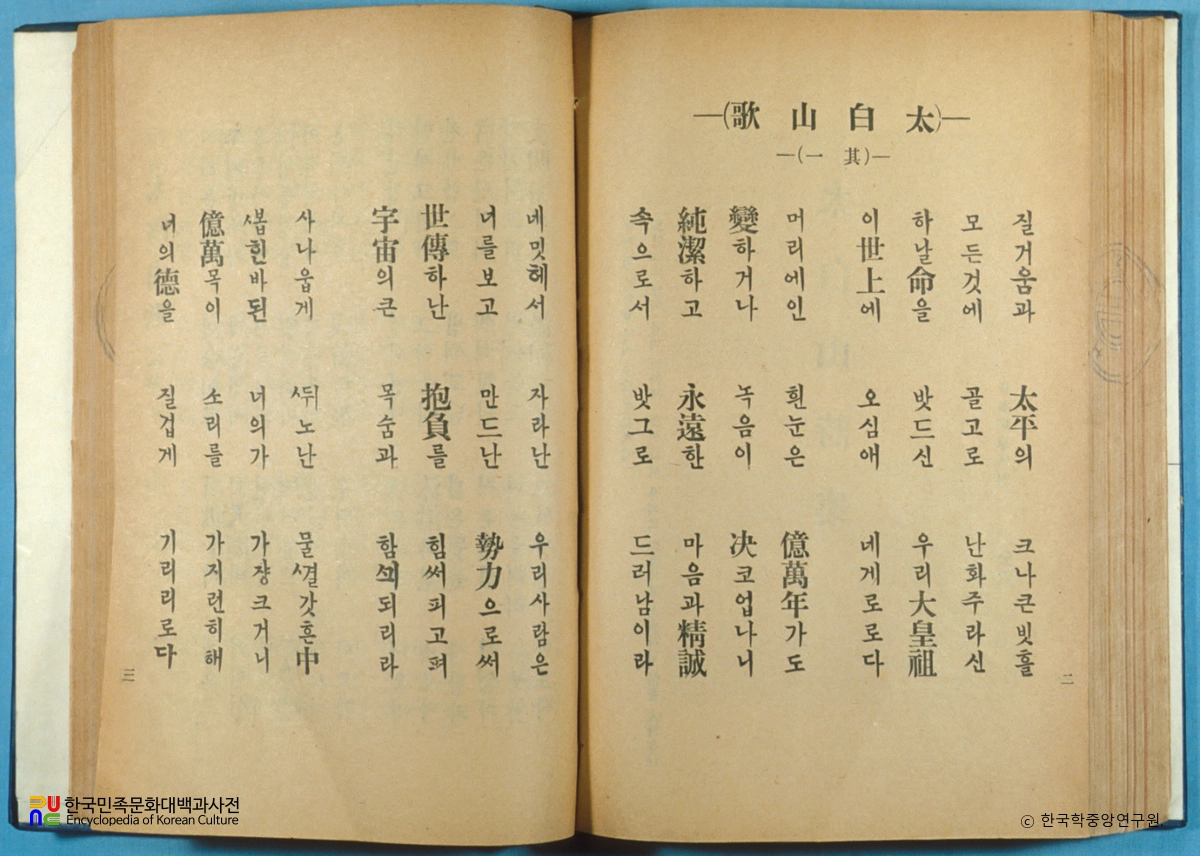 —(太白山歌)—
—(其一)—
질거움과 太平의 크나큰빗흘
모든것에 골고로 난화주라신
하날命을 밧드신 우리大皇祖
이世上에 오심애 네게로로다
머리에인 흰눈은 億萬年가도
變하거나 녹음이 決코업나니
純潔하고 永遠한 마음과精誠
속으로서 밧그로 드러남이라
二
네밋헤서 자라난 우리사람은
너를보고 만드난 勢力으로써
世傳하난 抱負를 힘써피고펴
宇宙의큰 목숨과 함ᄭᅴ되리라
사나웁게 ᄯᅱ노난 물ᄭᅧᆯ갓흔中
ᄲᅩᆸ힌바된 너의가 가쟝크거니
億萬목이 소리를 가지런히해
너의德을 질겁게 기리리로다
三
한국민족문화대백과사전
Encyclopedia of Korean Culture
ⓒ 한국학중앙연구원